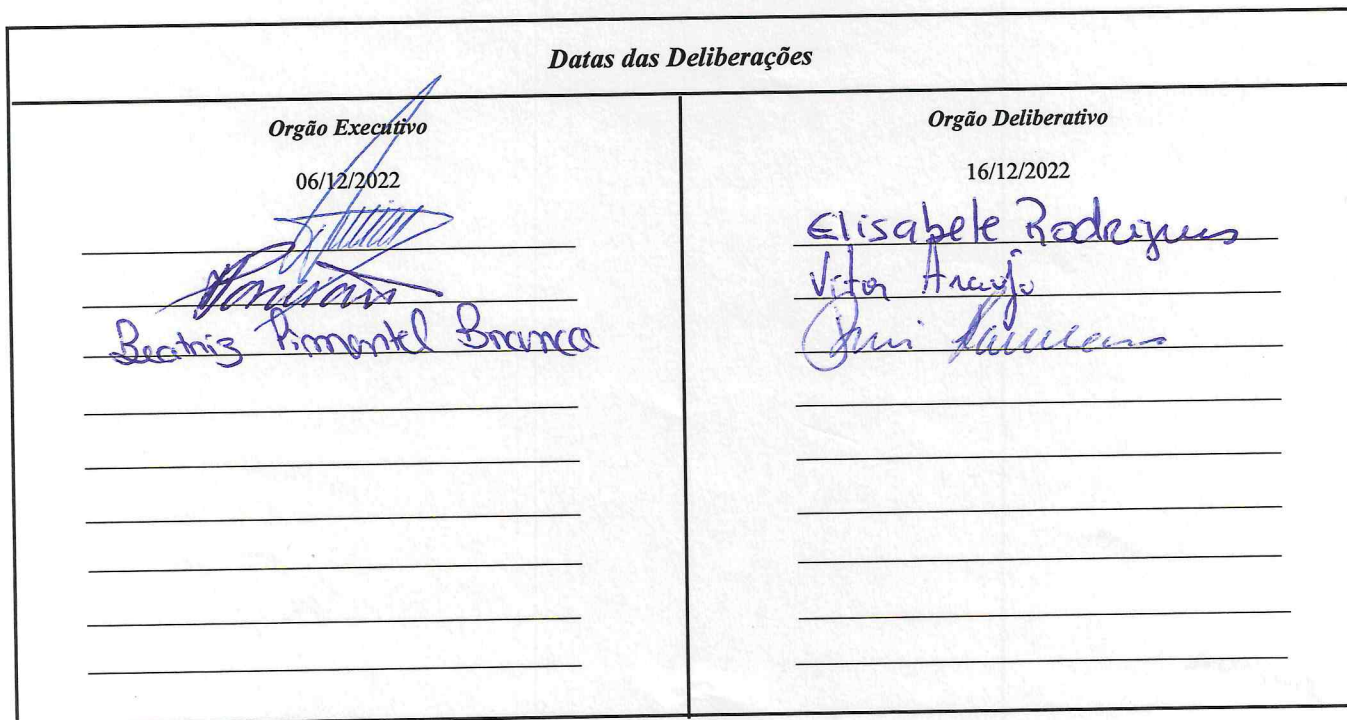 Datas das Deliberações
Orgão Executivo
06/12/2022
Beatriz Pimentel Branca
Orgão Deliberativo
16/12/2022
Elisabete Rodrigues
Vitor Araujo